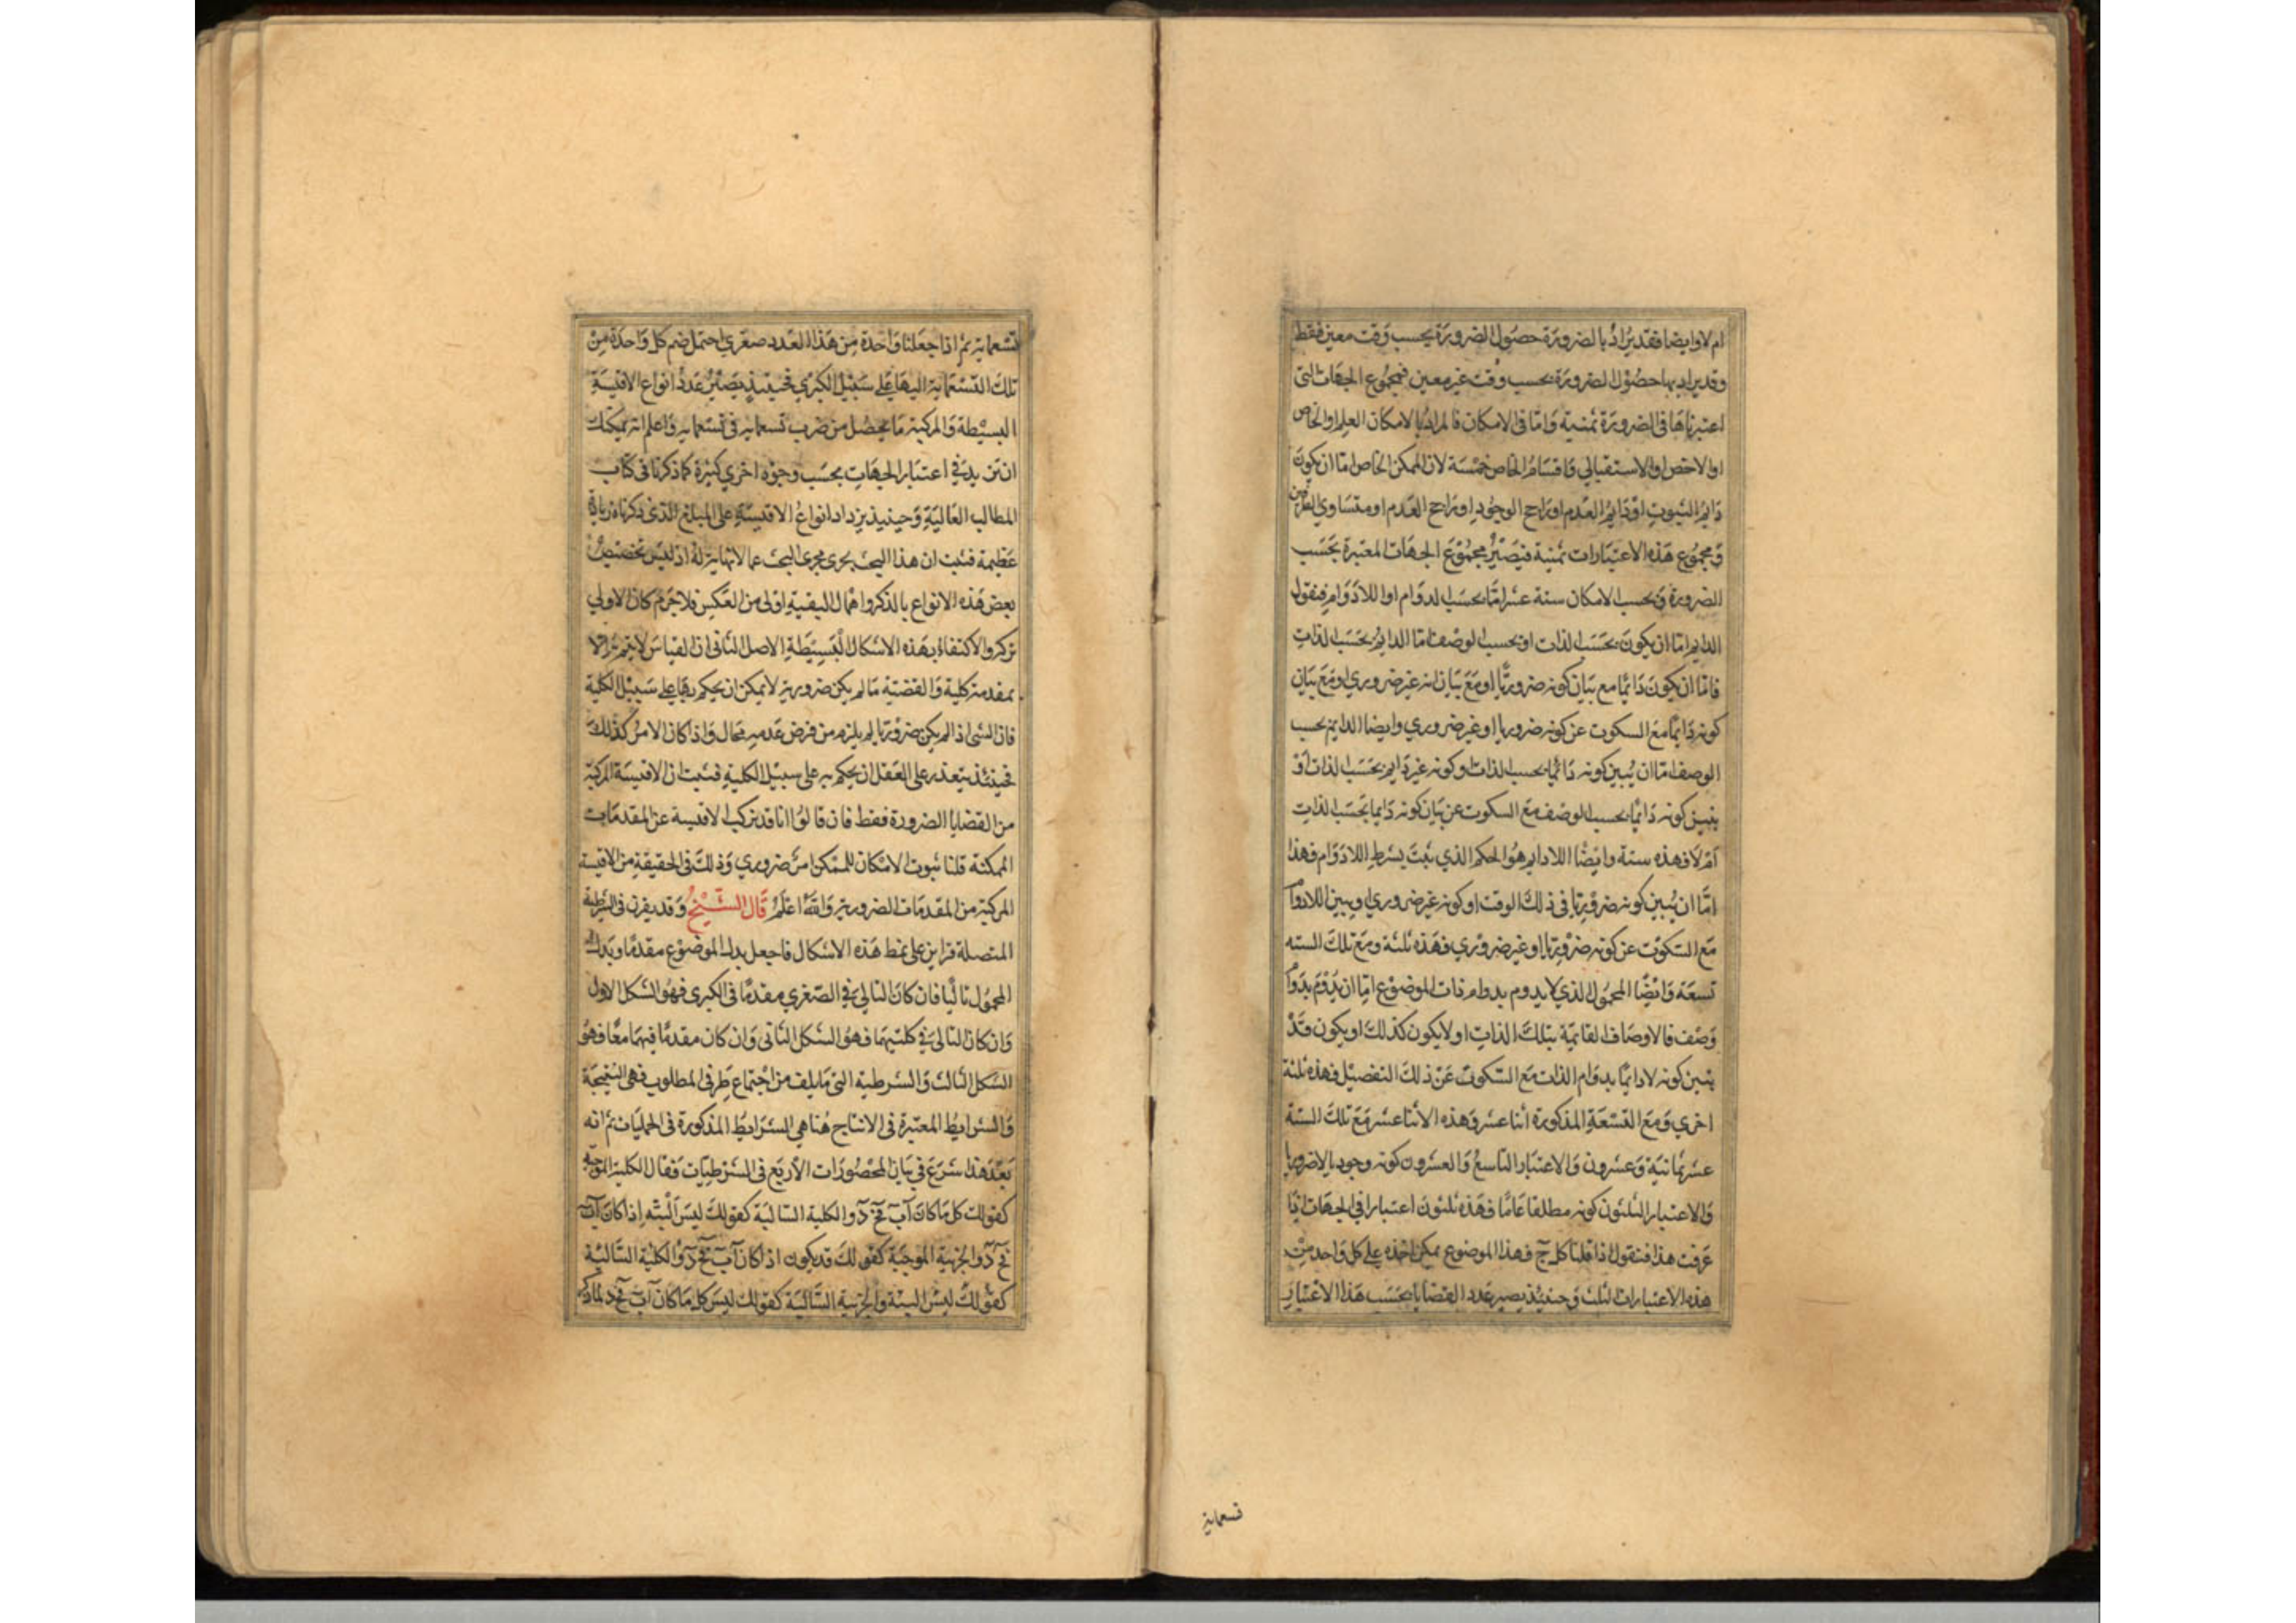 ام لا وايضا فقد يراد بالضرورة حصول الضرورة بحسب وقت معين فقط
وقد يراد بها حصول الضرورة بحسب وقت غير معين فمجموع الجهات التى
اعتبرناها فى الضرورة ثمنية واما فى الامكان فالمراد بالامكان العام او الخاص
او الاخص او الاستقبالي واقسام الخاص خمسة لان الممكن الخاص اما ان يكون
دايم الثبوت او دايم العدم او راجح الوجود او راجح العدم او متساوي الطرفين
ومجموع هذه الاعتبارات ثمنية فيصير مجموع الجهات المعتبرة بحسب
الضرورة وبحسب الامكان ستة عشر اما بحسب الدوام او اللادوام فنقول
الدايم اما ان يكون بحسب الذات او بحسب الوصف اما الدايم بحسب الذات
فاما ان يكون دائما مع بيان كونه ضروريا او مع بيان انه غير ضروري او مع بيان
كونه دائما مع السكوت عن كونه ضروريا او غير ضروري وايضا الدايم بحسب
الوصف اما ان يبين كونه دائما بحسب الذات او كونه غير دايم بحسب الذات او
يبين كونه دائما بحسب الوصف مع السكوت عن بيان كونه دايما بحسب الذات
ام لا فهذه ستة وايضا اللادايم هو الحكم الذي يثبت بشرط اللادوام فهذا
اما ان يبين كونه ضروريا في ذلك الوقت او كونه غير ضروري او يبين اللادوام
مع السكوت عن كونه ضروريا او غير ضروري فهذه ثلثة ومع تلك الستة
تسعة وايضا المحمول الذي لا يدوم بدوام ذات الموضوع اما ان يدوم بدوام
وصف فالاوصاف القائمة بتلك الذات او لا يكون كذلك او يكون قد
يبين كونه لا دائما بدوام الذات مع السكوت عن ذلك التفصيل فهذه ثلثة
اخري ومع التسعة المذكورة اثنا عشر وهذه الاثنا عشر مع تلك الستة
عشر ثمانية وعشرون والاعتبار التاسع والعشرون كونه وجوديا لا ضروريا
والاعتبار الثلثون كونه مطلقا عاما فهذه ثلثون اعتبارا في الجهات اذا
عرفت هذا فنقول اذا قلنا كل ج فهذا الموضوع يمكن اخذه على كل واحد من
هذه الاعتبارات الثلثين وحينئذ يصير عدد القضايا بحسب هذا الاعتبار
تسعماية
تسعماية ثم اذا جعلنا واحدة من هذا العدد صغري احتمل ضم كل واحدة من
تلك التسعماية اليها على سبيل الكبري فحينئذ يصير عدد انواع الاقيسة
البسيطة والمركبة ما يحصل من ضرب تسعماية فى تسعماية واعلم انه يمكنك
ان تزيد في اعتبار الجهات بحسب وجوه اخري كثيرة كما ذكرنا فى كتاب
المطالب العالية وحينيذ يزداد انواع الاقيسة على المبلغ الذى ذكرناه زيادة
عظيمة فثبت ان هذا البحث يجرى مجرى البحث عما لا نهاية له اذ ليس تخصيص
بعض هذه الانواع بالذكر واهمال البقية اولى من العكس فلا جرم كان الاولي
تركه والاكتفاء بهذه الاشكال البسيطة الاصل الثانى ان القياس لا يتم الا
بمقدمة كلية والقضية ما لم يكن ضرورية لا يمكن ان يحكم بها على سبيل الكلية
فان الشى اذا لم يكن ضروريا لم يلزم من فرض عدمه محال واذا كان الامر كذلك
فحينئذ يتعذر على العقل ان يحكم به على سبيل الكلية فثبت ان الاقيسة المركبة
من القضايا الضرورة فقط فان قالوا انا قد نركب الاقيسة عن المقدمات
الممكنة قلنا ثبوت الامكان للممكن امر ضروري وذلك فى الحقيقة من الاقيسة
المركبة من المقدمات الضرورية والله اعلم قال الشيخ وقد يقرن فى الشرطية
المتصلة قراين على نمط هذه الاشكال فاجعل بدل الموضوع مقدما وبدل
المحمول تاليا فان كان التالى في الصغري مقدما فى الكبرى فهو الشكل الاول
وان كان التالى في كلتيهما فهو الشكل الثانى وان كان مقدما فيهما معا فهو
الشكل الثالث والشرطية التى ما يلف من اجتماع طرفى المطلوب فهى النتيجة
والشرايط المعتبرة فى الانتاج هنا هى الشرايط المذكورة فى الحمليات ثم انه
بعد هذا شرع في بيان المحصورات الاربع فى الشرطيات وقال الكلية الموجبة
كقولك كل ما كان آب فج د والكلية السالبة كقولك ليس البته اذا كان آب
فج د والجزيية الموجبة كقولك قد يكون اذا كان آب فج د والكلية السالبة
كقولك ليس البتة والجزيية السالبة كقولك ليس كل ما كان آب فج د